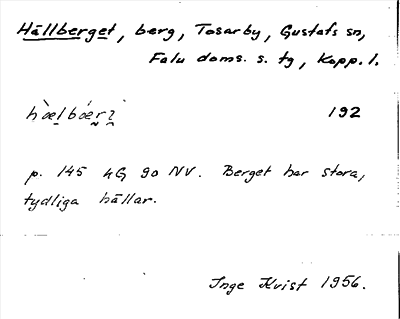 Hällberget, berg, Tosarby, Gustafs sn,
Falu doms. s. tg, Kopp. l.
hæ̀lbǽrı̣ 192
p. 145 hG 90 NV. Berget har stora,
tydliga hällar.
Inge Kvist 1956.